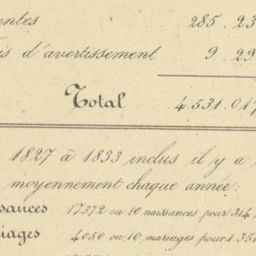 285.23
d'avertissement 9.29
Total 4.531.017
1827 à 1833 inclus il y a
moyennement chaque année:
17372 ou 10 naissances pour 314
4050 ou 10 mariages pour 1.35